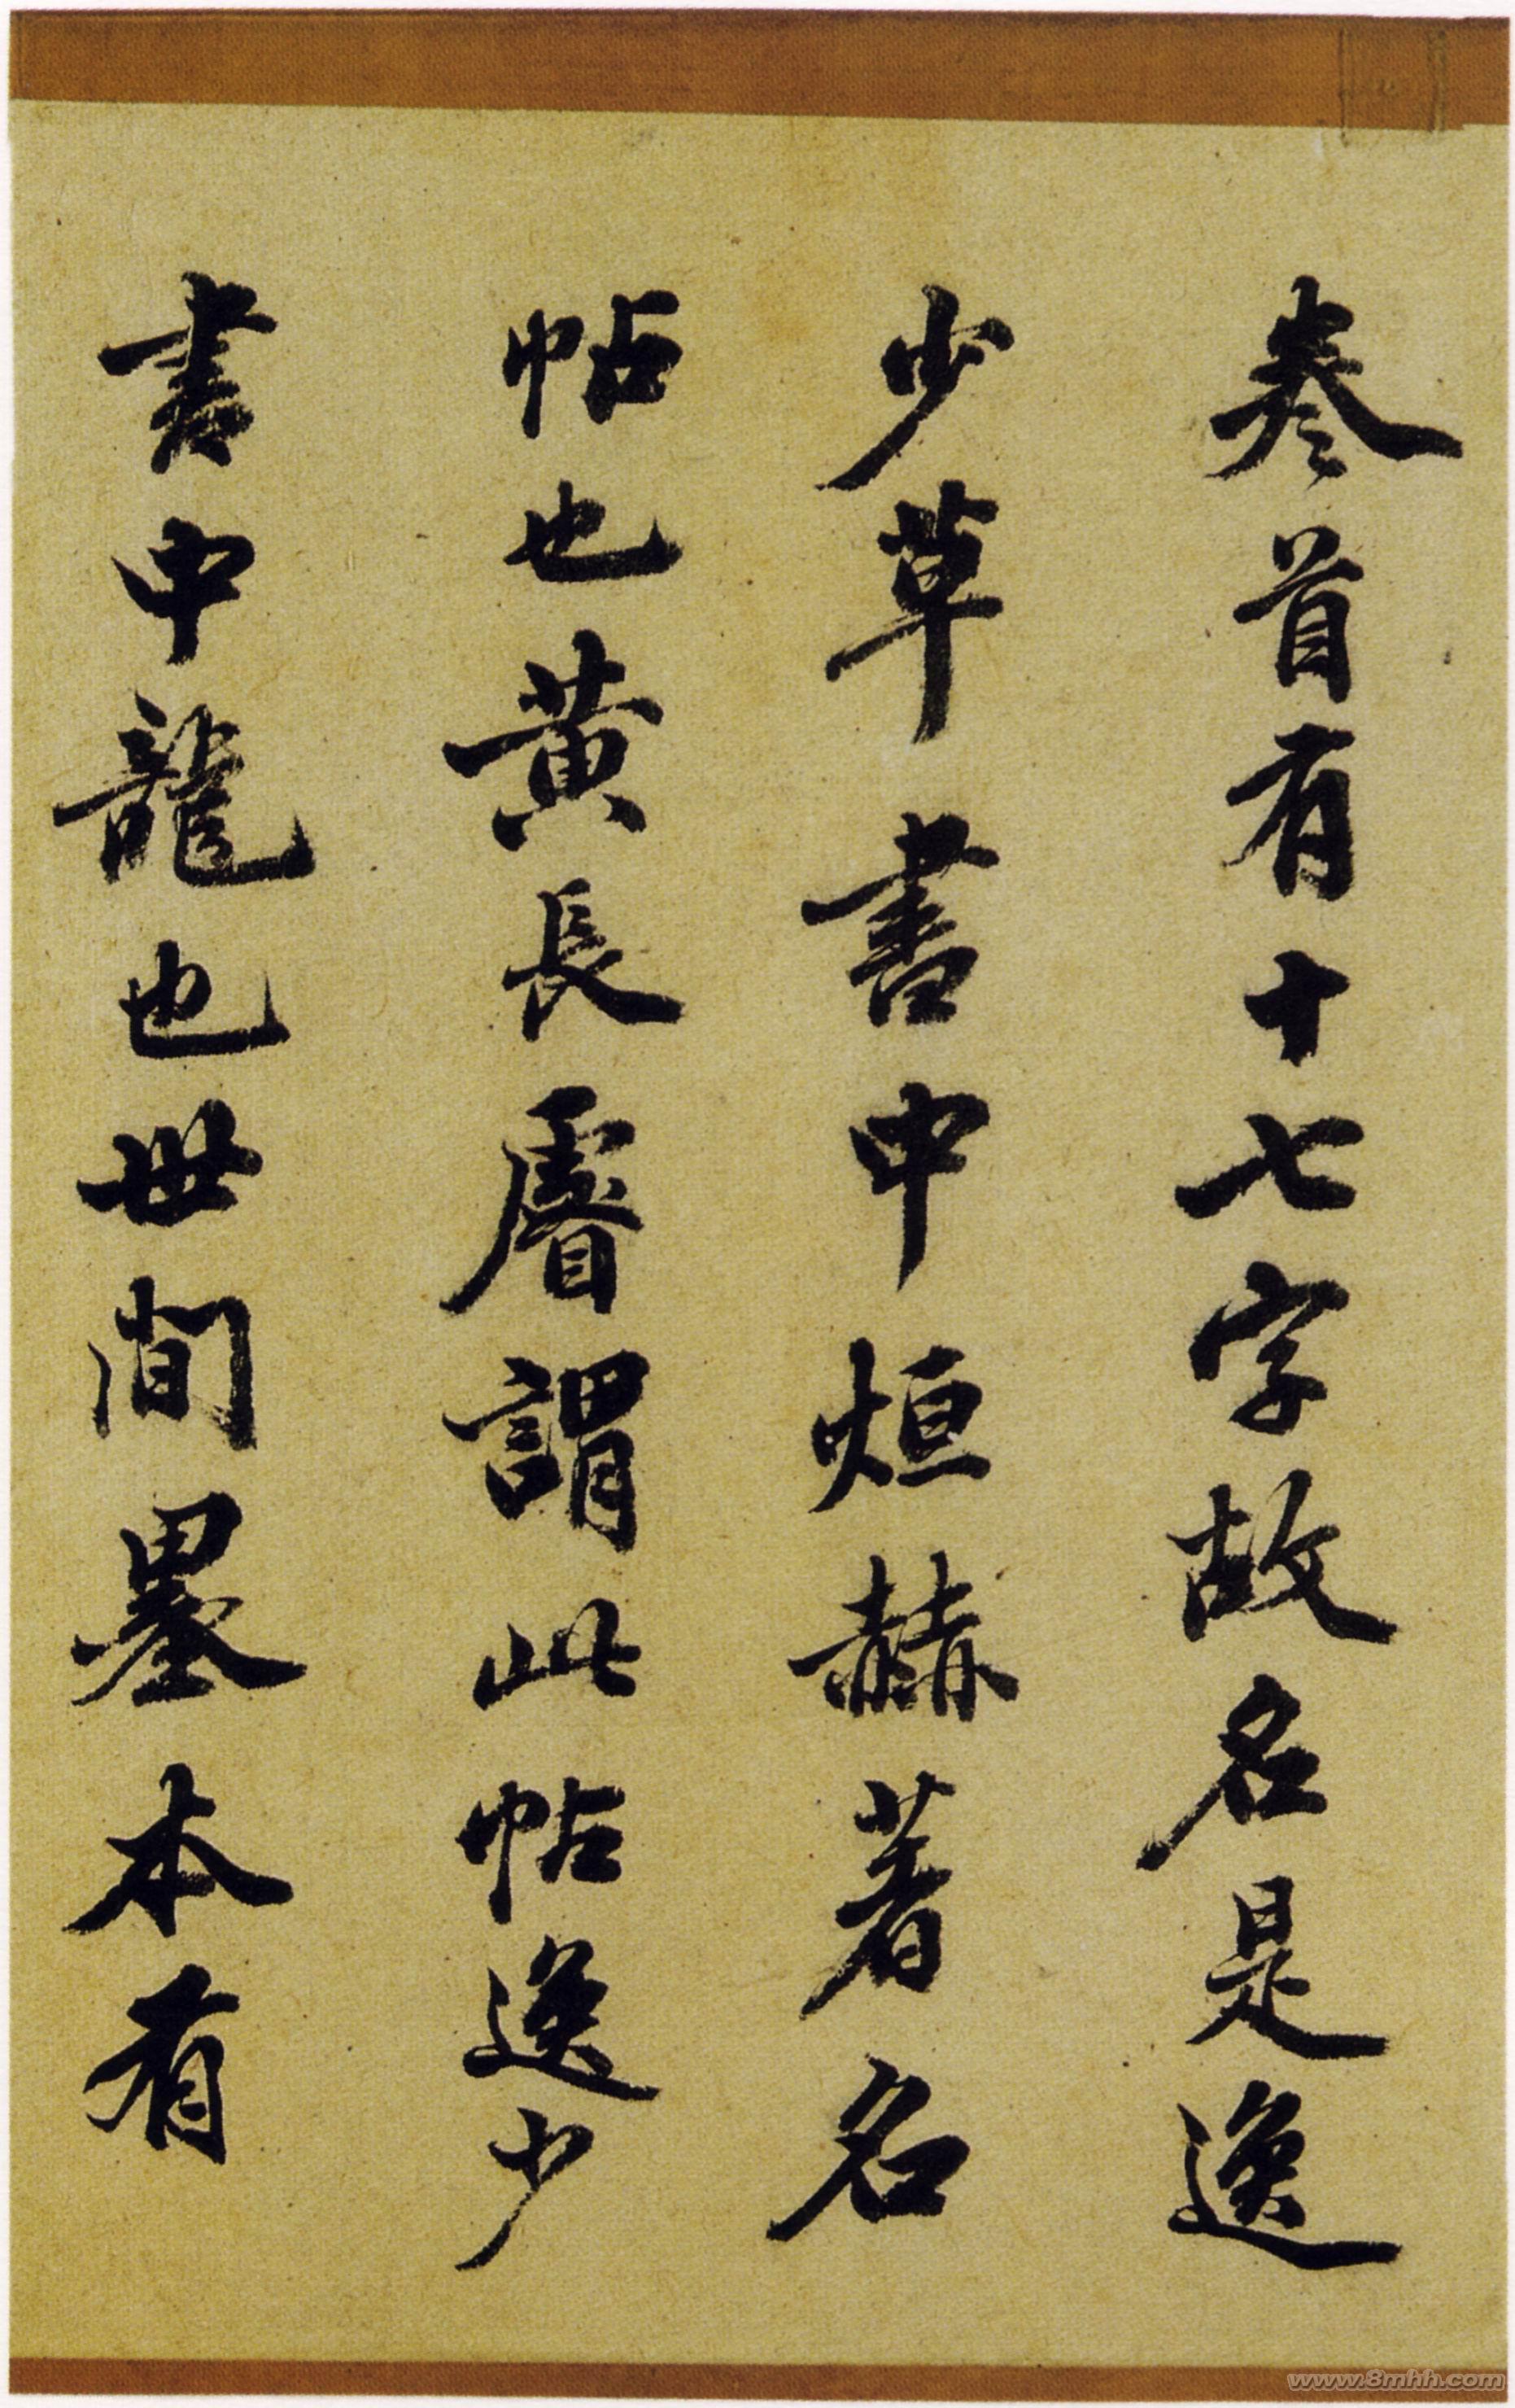 卷首有十七字故名是逸
少草書中烜赫著名
帖也黃長睿謂此帖逸少
書中龍也世間墨本有
www.8mhh.com